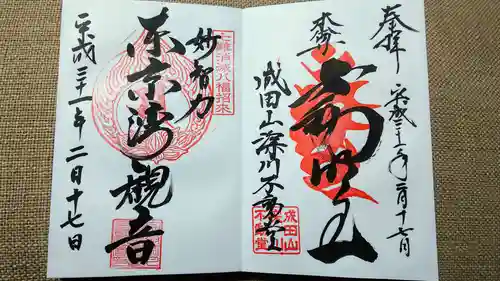 奉拝
平成三十一年二月十七日
本尊
不動明王
成田山深川不動堂
成田山
不動堂
七難消滅八福招来
妙智力
東京湾観音
平成三十一年二月十七日